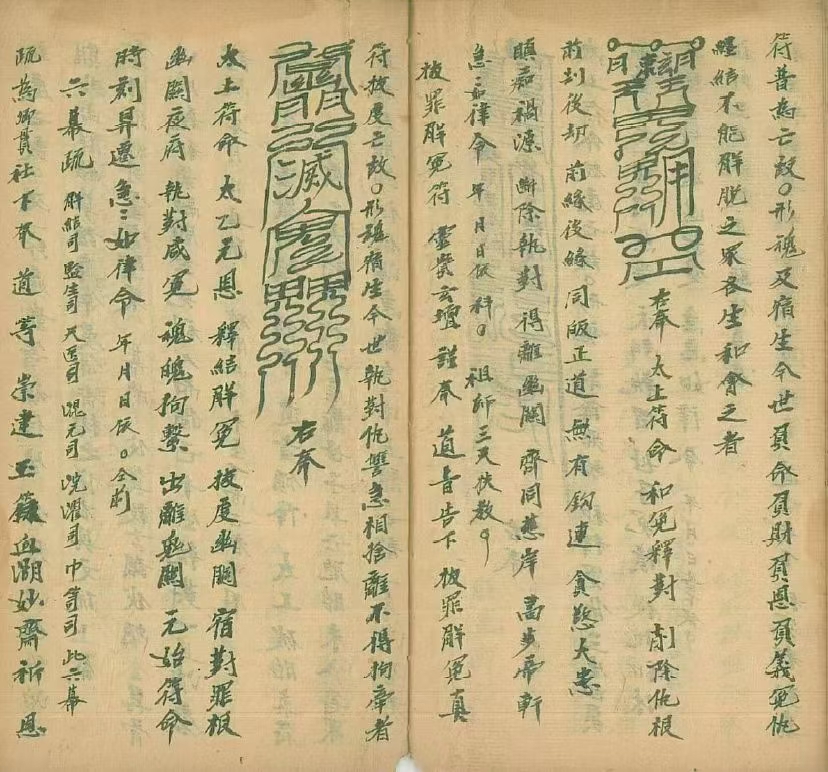 符普為亡故○形魂及宿生今世負命負財負恩負義冤仇
經結不能解脫之眾各生和會之者
右奉 太上符命 和冤釋對 削除仇根
前劫後劫 前緣後緣 同皈正道 無有鈎連 貪慾大恚
瞋癡禍源 斷除執對 得離幽關 齊同慈岸 高步帝軒
急急如律令 年月日依科○ 祖師三天扶教○
拔罪解冤符 靈寶玄壇 謹奉 道旨告下 拔罪解冤真
符拔度亡故○形魂宿生今世執對仇讐急相捨離不得拘牽者
右奉
太上符命 太乙元恩 釋結解冤 拔度幽關 宿對罪根
幽關夜府 執對咸寃 魂魄拘繫 出離幽關 元始符命
時刻昇遷 急急如律令 年月日依○仝前
六幕疏 解結司 監生司 天醫司 混元司 洗濯司 巾筒司 此六幕
疏為鄉貫社下奉 道 等 崇建玉籙血湖妙齋祈恩